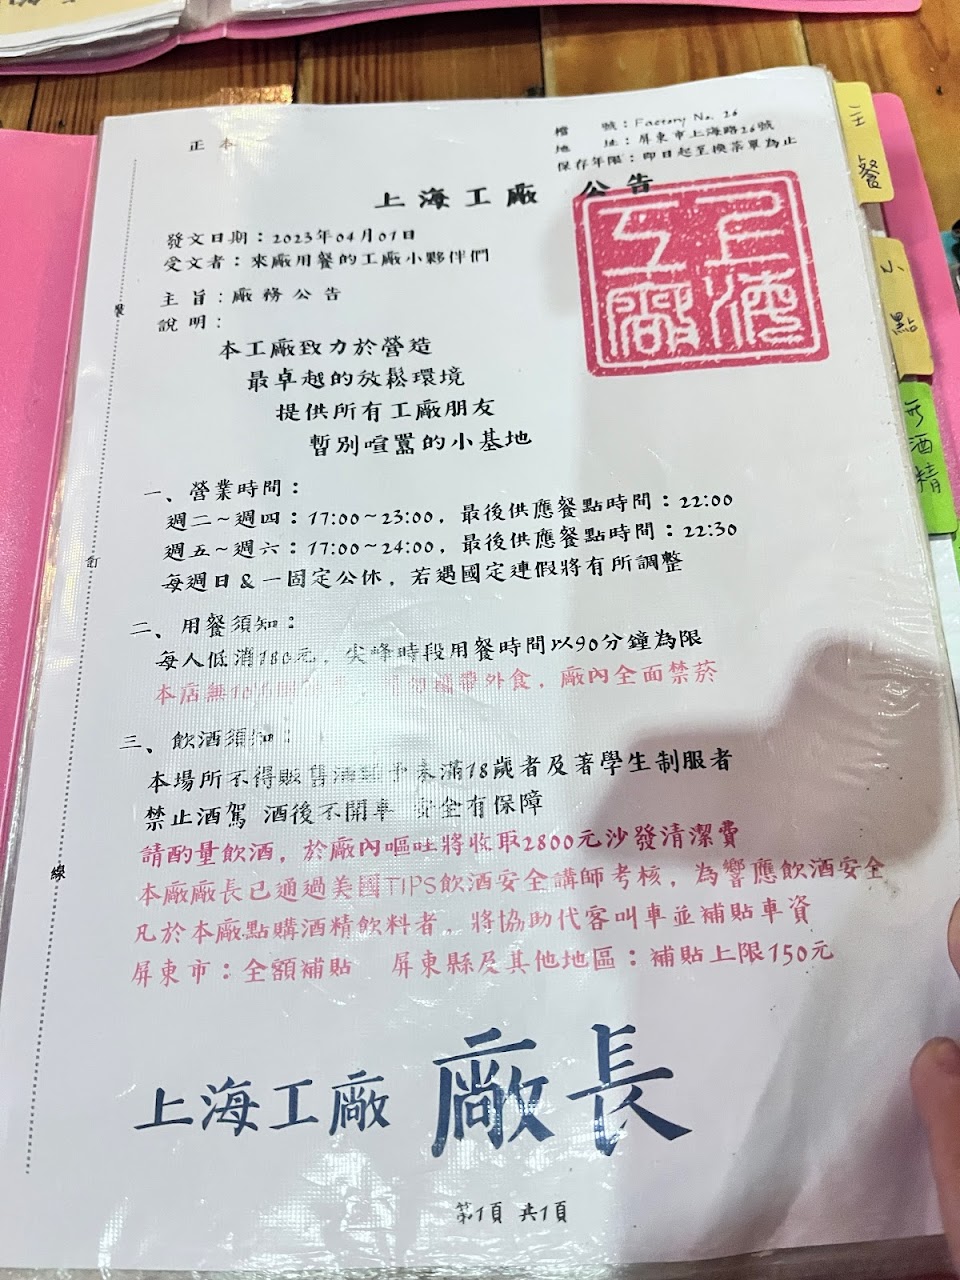 正本
檔 號：Factory No. 26
地 址：屏東市上海路26號
保存年限：即日起至換菜單為止
上海工廠 公告
上海工廠
發文日期：2023年04月01日
受文者：來廠用餐的工廠小夥伴們
主旨：廠務公告
說明：
本工廠致力於營造
最卓越的放鬆環境
提供所有工廠朋友
暫別喧囂的小基地
一、營業時間：
週二~週四：17:00~23:00，最後供應餐點時間：22:00
週五~週六：17:00~24:00，最後供應餐點時間：22:30
每週日&一固定公休，若遇國定連假將有所調整
二、用餐須知：
每人低消180元，尖峰時段用餐時間以90分鐘為限
本店無10%服務費，請勿攜帶外食，廠內全面禁菸
三、飲酒須知：
本場所不得販售酒類予未滿18歲者及著學生制服者
禁止酒駕 酒後不開車 安全有保障
請酌量飲酒，於廠內嘔吐將收取2800元沙發清潔費
本廠廠長已通過美國TIPS飲酒安全講師考核，為響應飲酒安全
凡於本廠點購酒精飲料者，將協助代客叫車並補貼車資
屏東市：全額補貼 屏東縣及其他地區：補貼上限150元
上海工廠 廠長
第1頁 共1頁
釘
線
主餐
小點
酒精